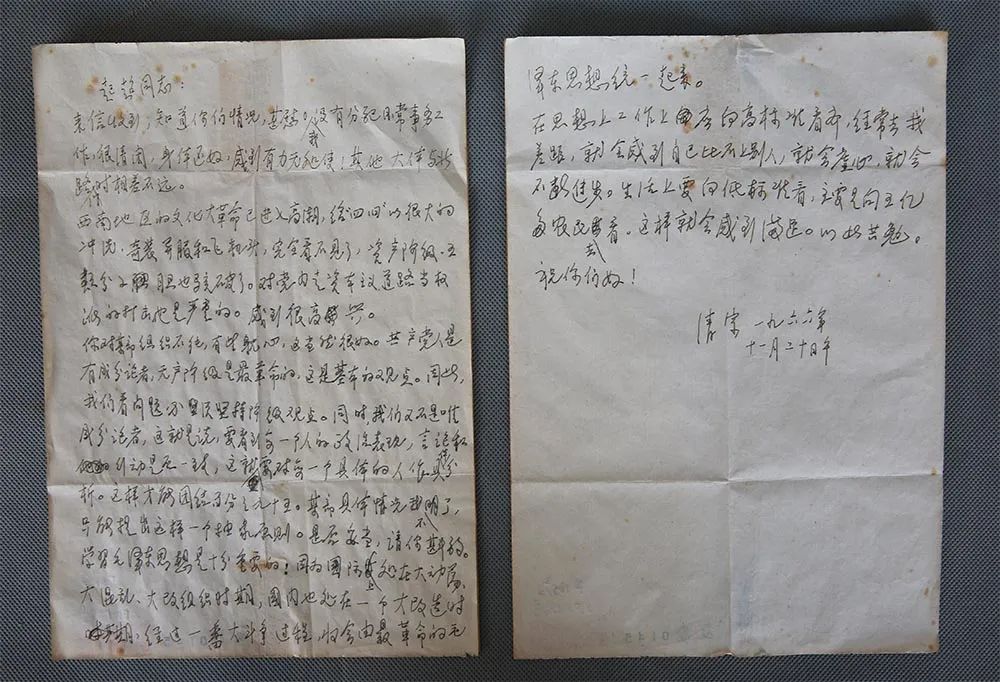 起超同志：
来信收到；知道你们情况，甚慰。我没有分配日常事务工
作，很清闲，身体还好，感到有力无处使！其他大体与你
时相差不远。
西南地区的文化大革命已进入高潮，给“四旧”以很大的
冲洗，奇装异服和飞机头，完全看不见了，资产阶级、五
类分子胆也吓破了。对党内走资本主义道路当权
派的打击也是严重的。感到很高兴。
你对某部组织不纯，有些耽心，这当然很好。共产党人是
有成分论者，无产阶级是最革命的，这是基本的观点。因此，
我们看问题必须坚持阶级观点。同时，我们又不是唯
成分论者，这就是说，要看到每一个人的政治表现，言论和
行动是否一致，这就要对每一个具体的人作具体分
析。这样才能团结百分之九十五。某部具体情况我不明了，
只能提出这样一个抽象原则。是否妥当，请你斟酌。
学习毛泽东思想是十分重要的！因为国际上处在大动荡、
大混乱、大改组织时期，国内也处在一个大改造时
期，经过一番大斗争过程，将会由最革命的毛
泽东思想统一起来。
在思想上工作上要向高标准看齐，经常去找
差距，就会感到自己比不上别人，就会虚心，就会
不断进步。生活上要向低标准看，主要是向五亿
多农民看。这样就会感到满足。以此共勉。
祝你们好！
清宗 一九六六年
十一月二十日午